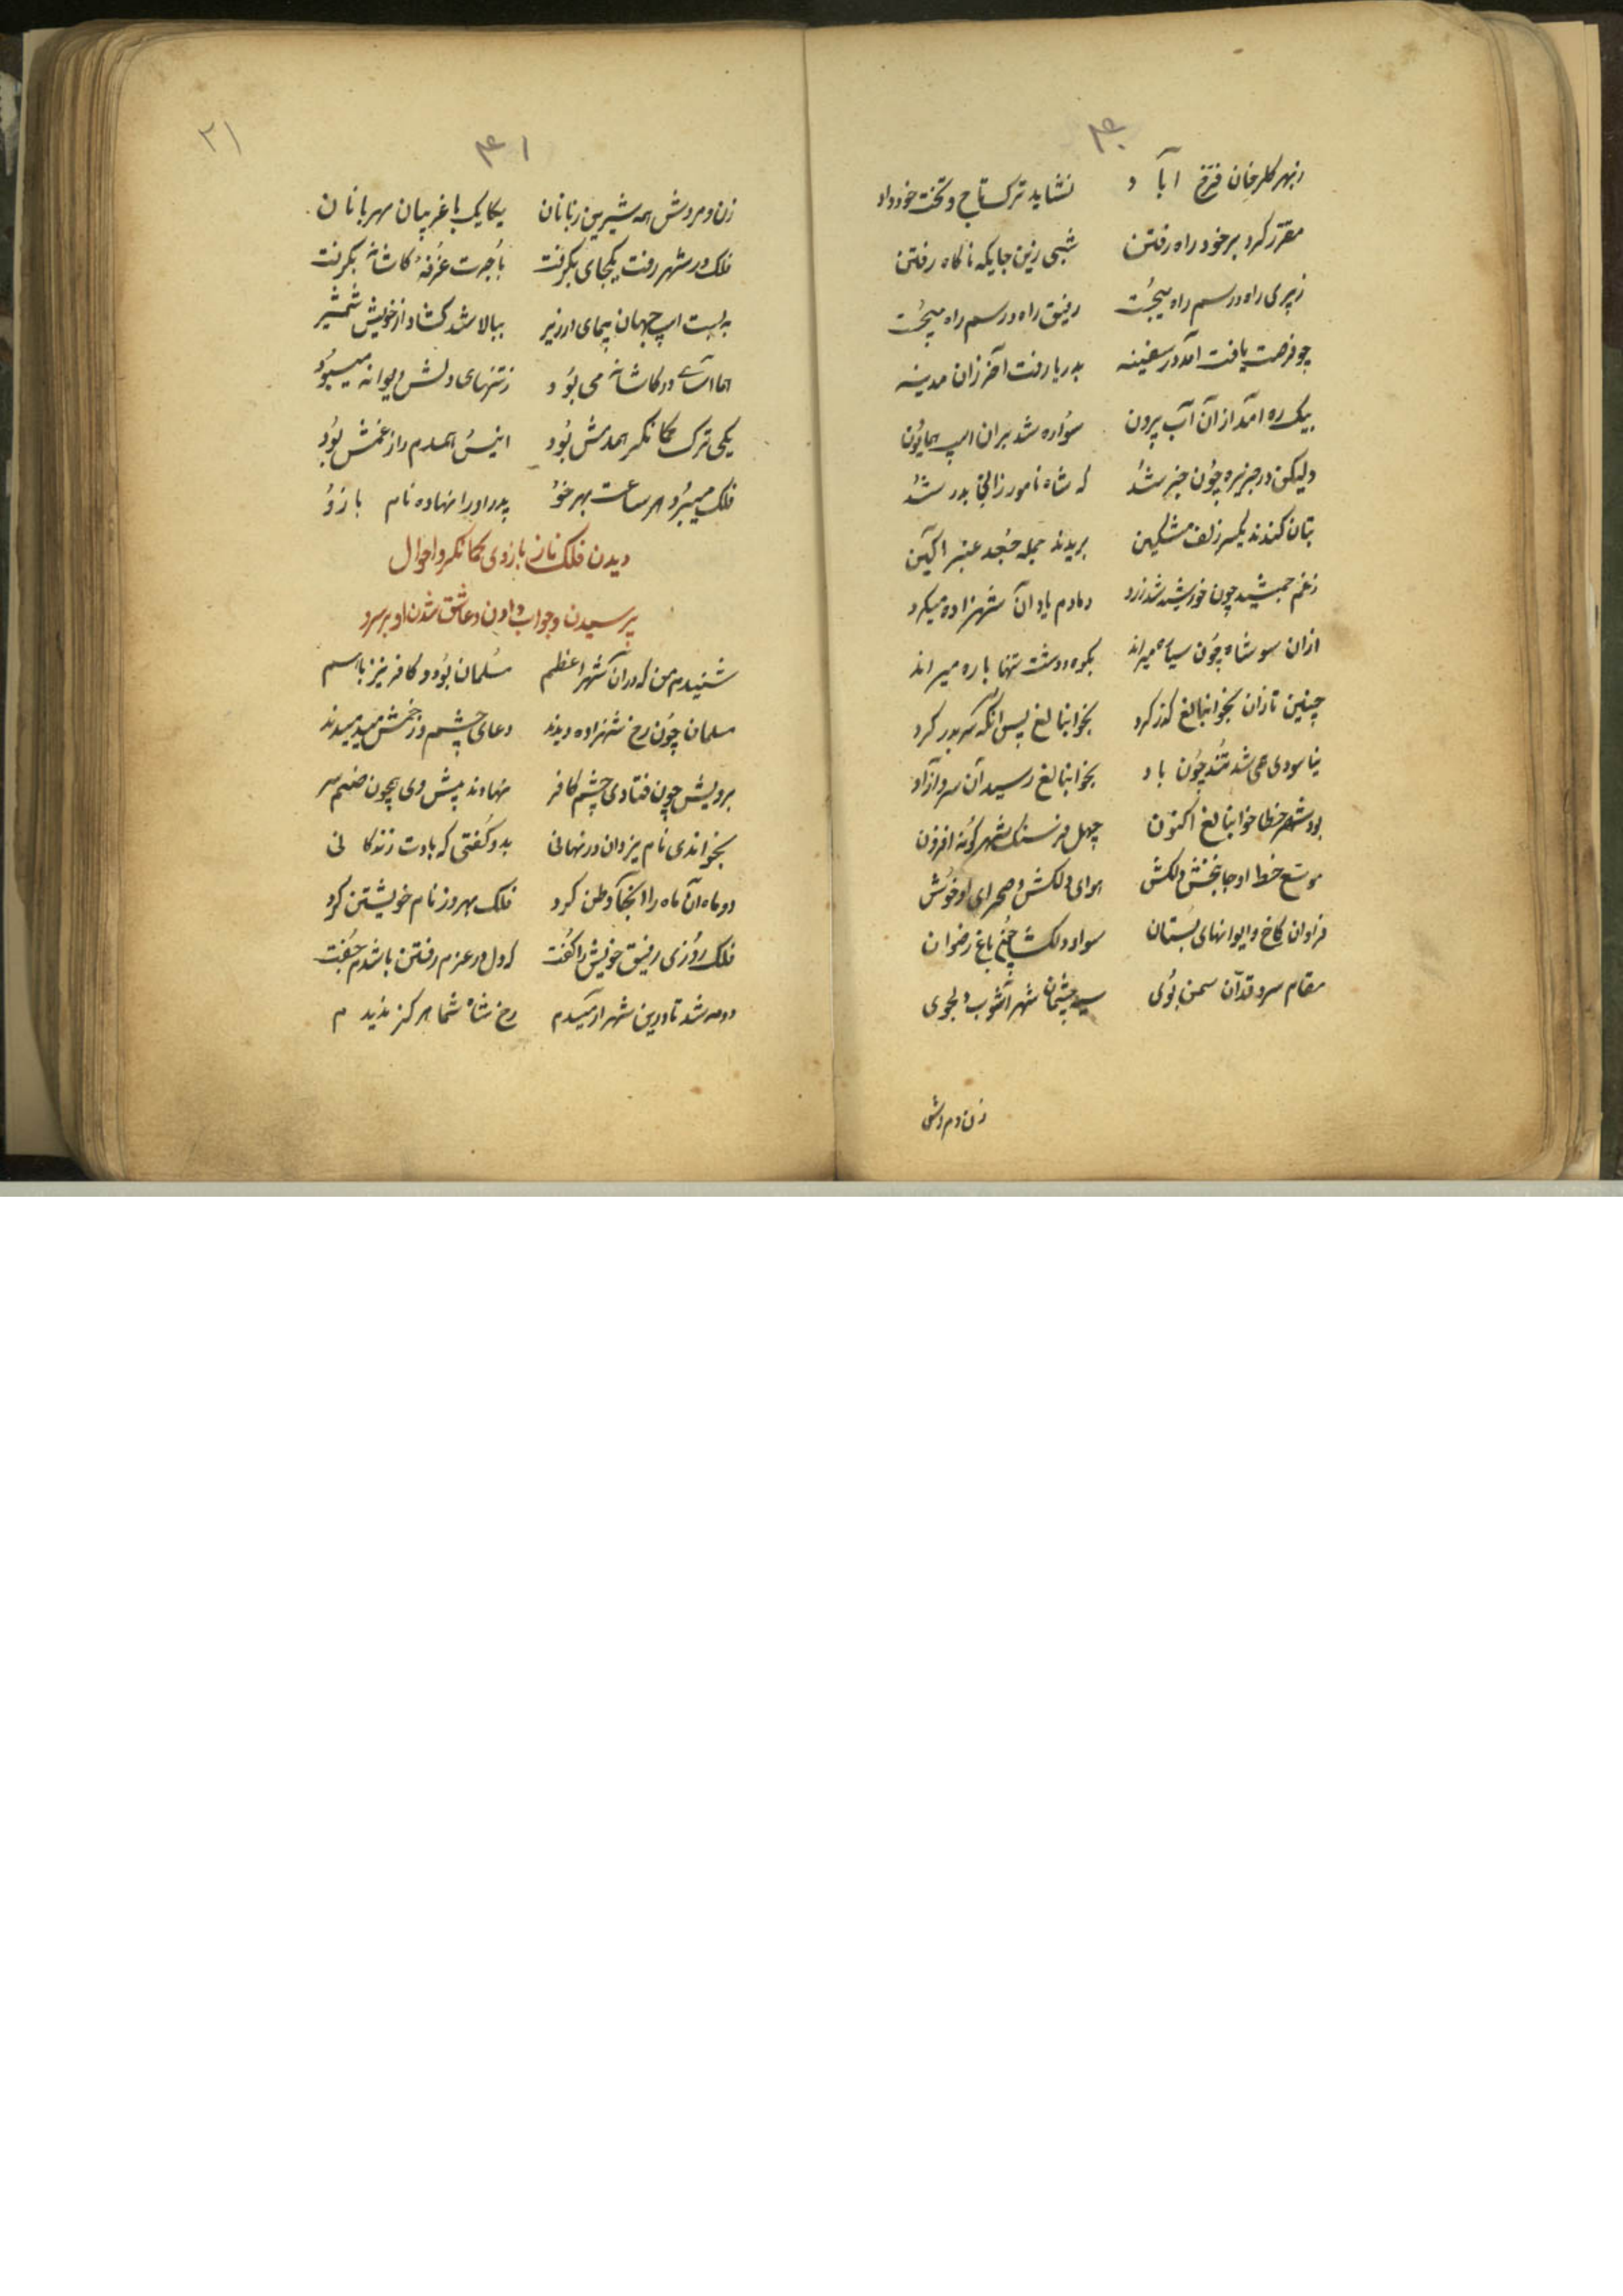 ۴۰
ز بهر گلرخان فرخ آباد نشاید ترک تاج و تخت خود داد
مقرر کرد بر خود راه رفتن شبی زین جایکه ناکاه رفتن
ز پیری راه و رسم راه میجست رفیق راه و رسم راه میجست
چو فرصت یافت آمد در سفینه بدریا رفت آخر زان مدینه
بیک ره آمد از آن آب بیرون سواره شد بران اسپ همایون
ولیکن در جزیره چون خبر شد که شاه نامور زانجا بدر شد
بتان کندند یکسر زلف مشکین بریدند جمله جعد عنبر آکین
ز غم جمشید چون خورشید شد زرد دمادم یاد آن شهزاده میکرد
ازان سو شاه چون سیاه میراند بکوه و دشت تنها باره میراند
چنین تازان بخوابنالغ کذر کرد بخوابنالغ پس آنکه سر بدر کرد
نیاسودی همی شد تند چون باد بخوابنالغ رسید آن سرو آزاد
بود شهر خطا خوابنالغ اکنون چهل فرسنک شهر کونه افزون
موسع خطه او جانبخش دلکش هوای دلکش و صحرای او خوش
فراوان کاخ و ایوانهای بستان سواد دلکشا چون باغ رضوان
مقام سرو قدان سمن بوی سیه چشمان شهر آشوب دلجوی
زن و مردش
۴۱
۲۱
زن و مردش همه شیرین زبانان یکایک با غریبان مهربانان
فلک در شهر رفت یکجای بکرفت باجرت غرفه کاشانه بکرفت
به بست اسپ جهان پیمای در زیر ببالا شد کشاد از خویش شمشیر
همااسای در کاشانه می بود ز تنهای دلش دیوانه میبود
یکی ترک کمانکر همدمش بود انیس همدم راز غمش بود
فلک میبرد هر ساعت بهر خو پدر او را نهاده نام بازو
دیدن فلک ناز بازوی کمانکر و احوال
پرسیدن و جواب دادن و عاشق شدن او بر سرو
شنیدم من که در آن شهر اعظم مسلمان بود و کافر نیز با هم
مسلمان چون رخ شهزاده دیدند دعای چشم و زخمش میدمیدند
برویش چون فتادی چشم کافر نهادند پیش وی همچون صنم سر
بخواندی نام یزدان در نهانی بدو کفتی که بادت زندکانی
دو ماه آن ماه را آنجا وطن کرد فلک بهروز نام خویشتن کرد
فلک روزی رفیق خویش را کفت که دل در عزم رفتن باشدم جفت
دو مه شد تا درین شهر آرمیدم رخ شاه شما هرکز ندیدم